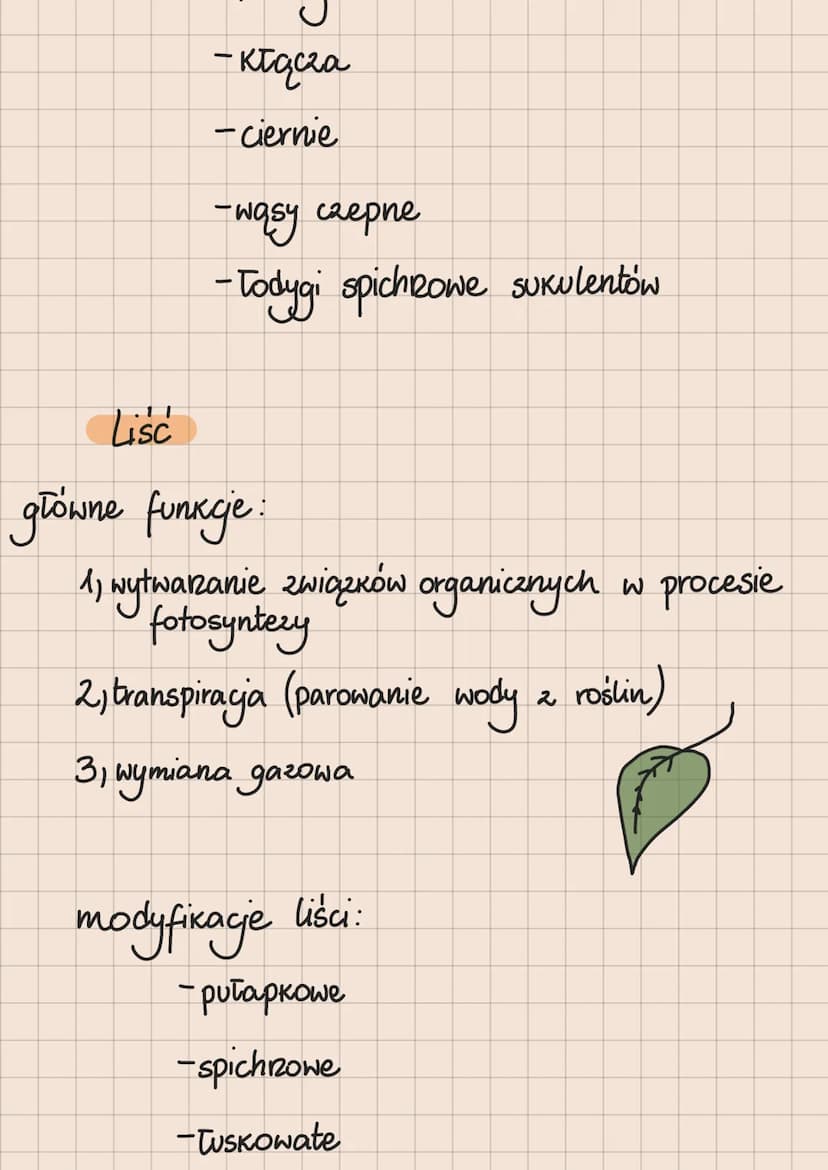 -kłącza
-ciernie
-wąsy czepne
-łodygi spichrzowe sukulentów
Liść
główne funkcje:
1) wytwarzanie związków organicznych w procesie
fotosyntezy
2) transpiracja (parowanie wody z roślin)
3) wymiana gazowa
modyfikacje liści:
-pułapkowe
-spichrzowe
-łuskowate